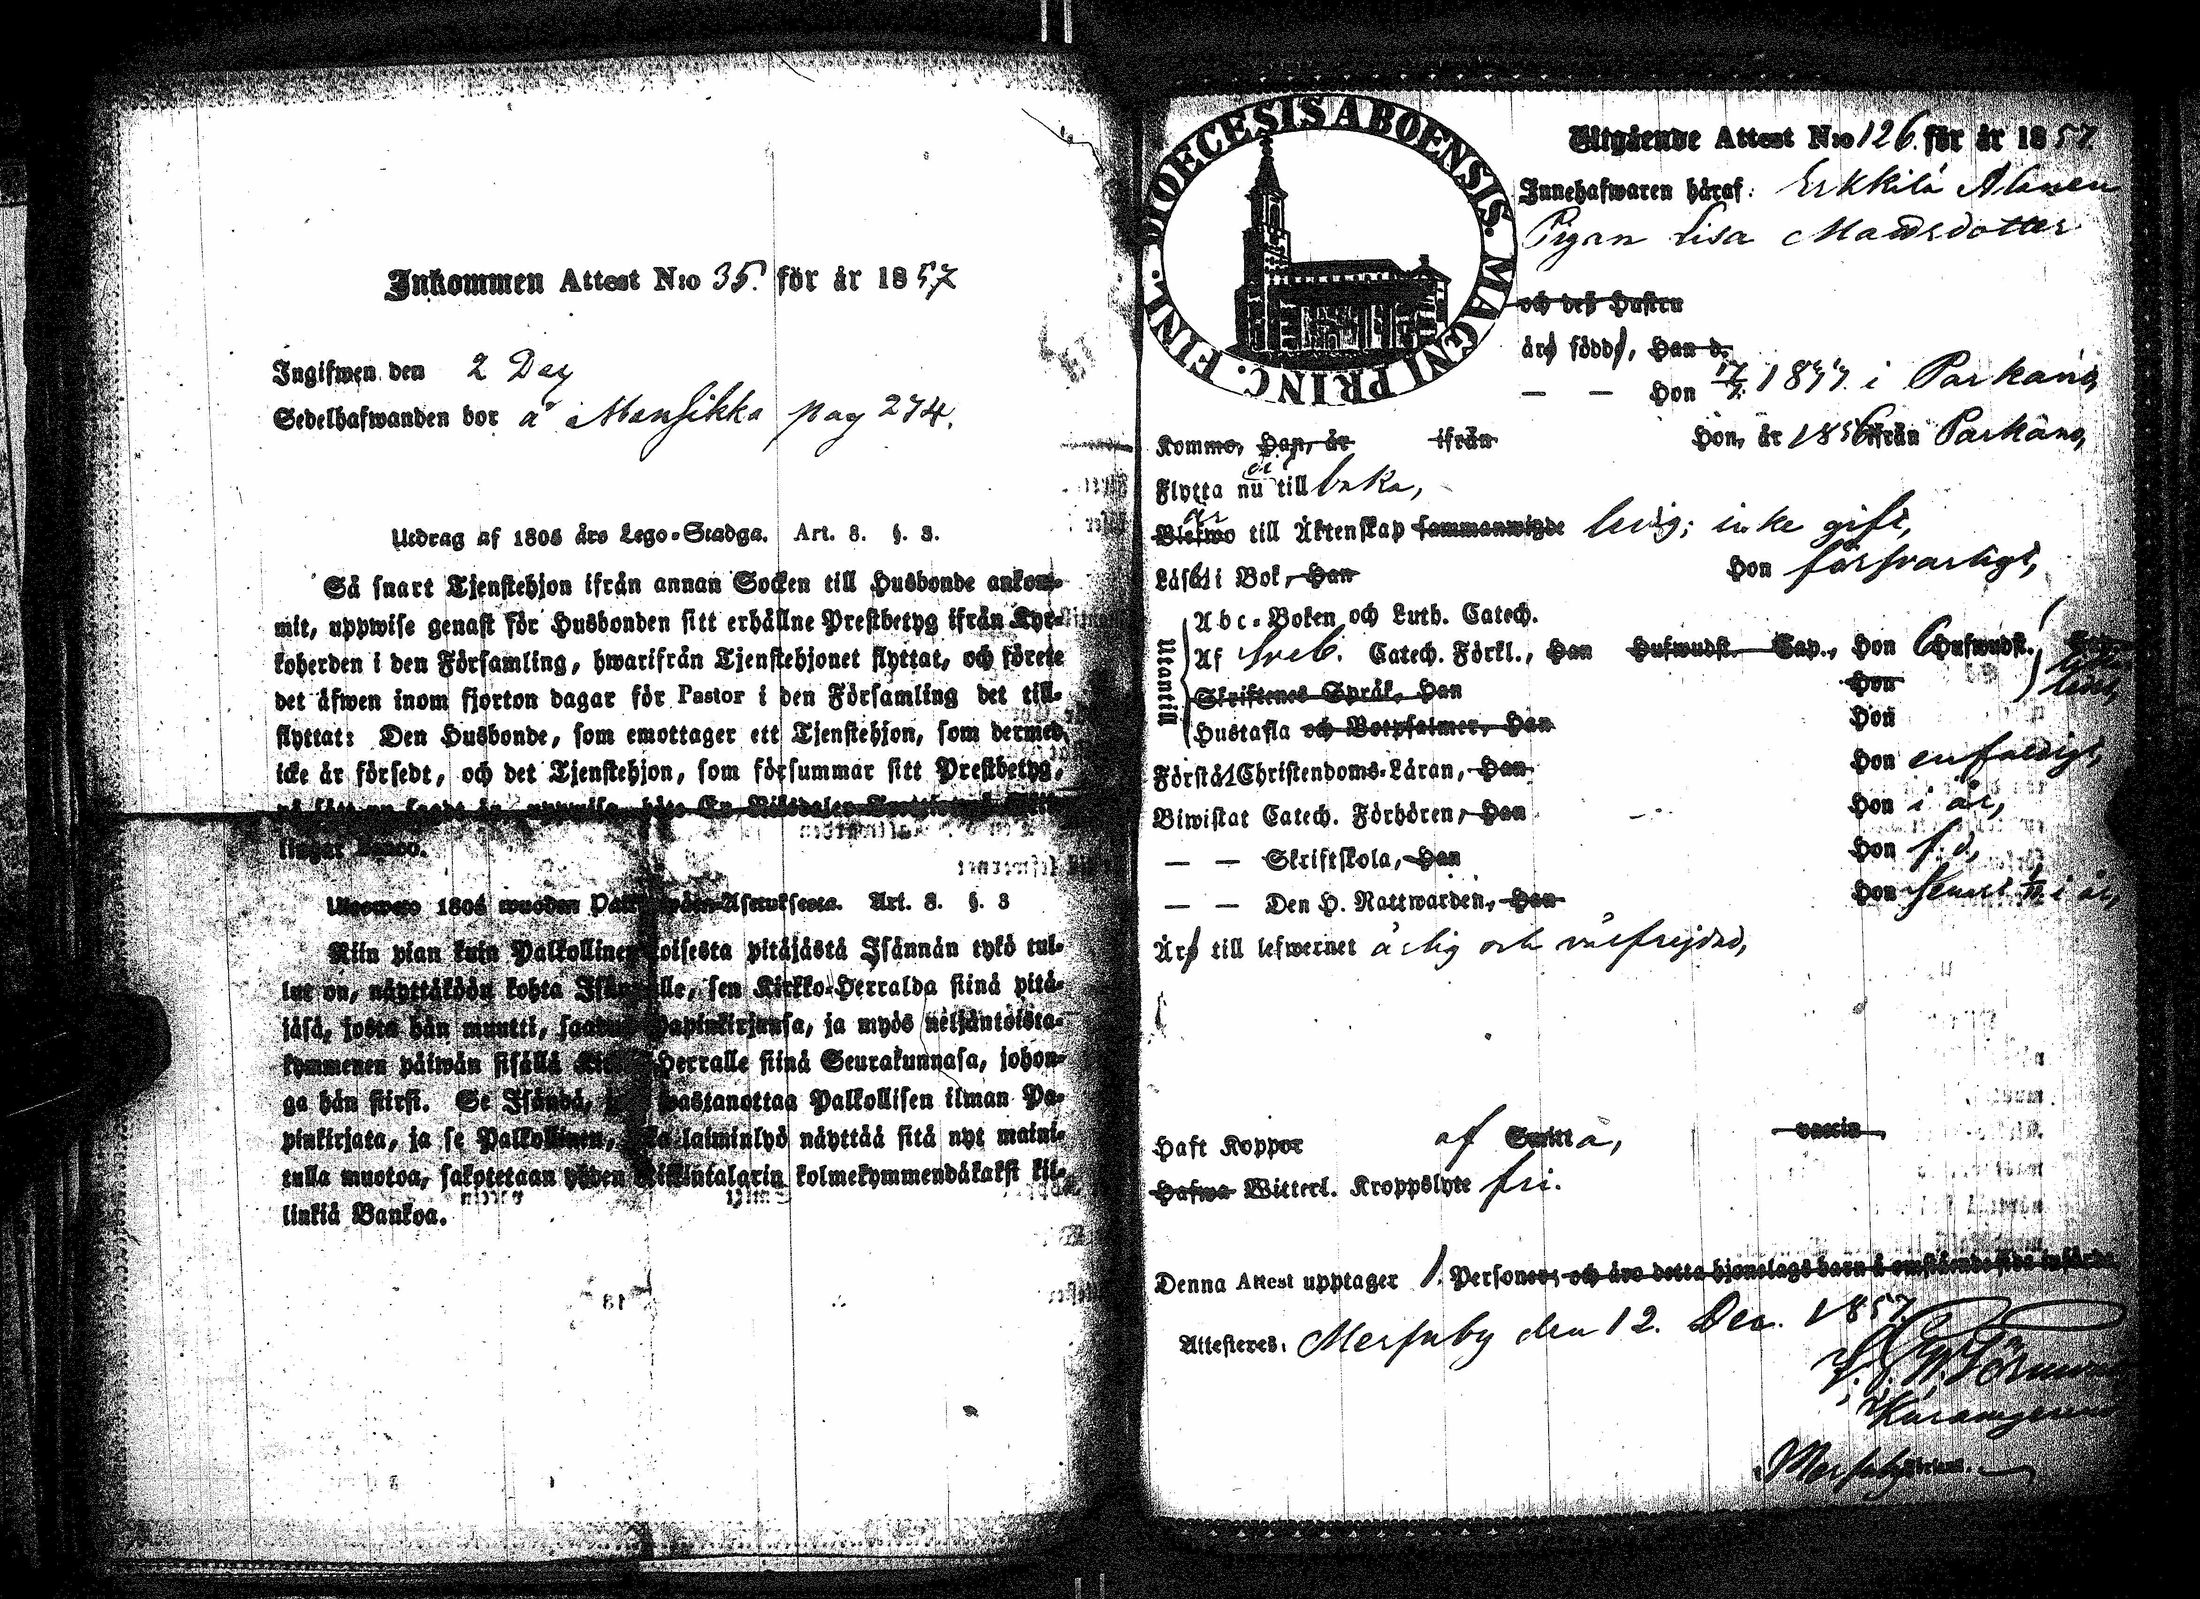 Inkommen Attest N:o 35. för år 1857
Ingifwen den 2 Dec
Sedelhafwanden bor å Mansikka pag 274.
Utdrag af 1805 års Lego-Stadga. Art. 8. §. 3.
Så snart Tjenstehjon ifrån annan Socken till Husbonde ankom-
mit, uppwise genast för Husbonden sitt erhållne Prestbetyg ifrån Kyr-
koherden i den Församling, hwarifrån Tjenstehjonet flyttat, och förete
det äfwen inom fjorton dagar för Pastor i den Församling det till-
flyttat: Den Husbonde, som emottager ett Tjenstehjon, som dermed
icke är försedt, och det Tjenstehjon, som försummar sitt Prestbetyg,
på sätt nu sagdt är, uppwisa, böte En Riksdaler
lingar Banco.
1805 wuoden Asetuksesta. Art. 8. §. 3
Niin pian kuin Palkollinen toisesta pitäjästä Isännän tykö tul-
lut on, näyttäköön kohta Isännälle, sen Kirkko-Herralda siinä pitä-
jäsä, josta hän muutti, saatun Papinkirjansa, ja myös neljäntöista-
kymmenen päiwän sisällä Kirkko-Herralle siinä Seurakunnasa, johon-
ga hän siirsi. Se Isändä, joka wastanottaa Palkollisen ilman Pa-
pinkirjata, ja se Palkollinen, joka laiminlyö näyttää sitä nyt maini-
tulla muotoa, sakotetaan yhden Riksintalarin kolmekymmendäkaksi kil-
linkiä Bankoa.
DIOECESIS ABOENSIS. MAGNI PRINC. FINL.
Utgående Attest N:o 126. för år 1857.
Innehafwaren häraf: Erkkilä Alanen
Pigan Lisa Matsdotter
och deß Hustru
äro född, Han d.
— — Hon 1837 i Parkano,
Komme, Han, år ifrån Hon, år 1856 ifrån Parkano,
Flytta nu till baka,
är
Blefwo till Äktenskap sammanwigde ledig; icke gift,
Läsa i Bok, Han Hon försvarligt,
Utantill
Abc-Boken och Luth. Catech.
Af Sveb. Catech. Förkl., Han Hufwudst. Cap., Hon 6 Hufwudst.
Skriftenes Språk, Han Hon
Hustafla och Botpsalmer, Han Hon
Förstå Christendoms-Läran, Han Hon enfaldigt,
Biwistat Catech. Förhören, Han Hon i år,
— — Skriftskola, Han Hon f.d,
— — Den H. Nattwarden, Han Hon senast i år,
Äro till lefwernet ärlig och välfrejdad,
Haft Koppor af Smitta, vaccin,
Hafwa Witterl. Kroppslyte fri.
Denna Attest upptager 1. Personer, och äro detta hjonelags barn å omstående sida införde.
Attesteres: Merfwby den 12. Dec. 1857.